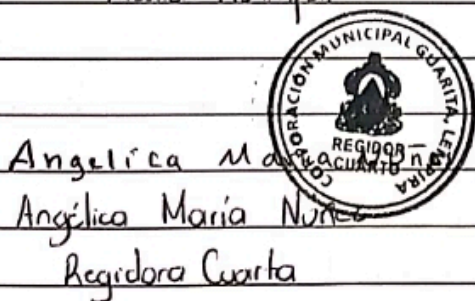 CORPORACIÓN MUNICIPAL GUARITA, LEMPIRA
REGIDOR
CUARTO
Angelica
Angélica María Nuñez
Regidora Cuarta